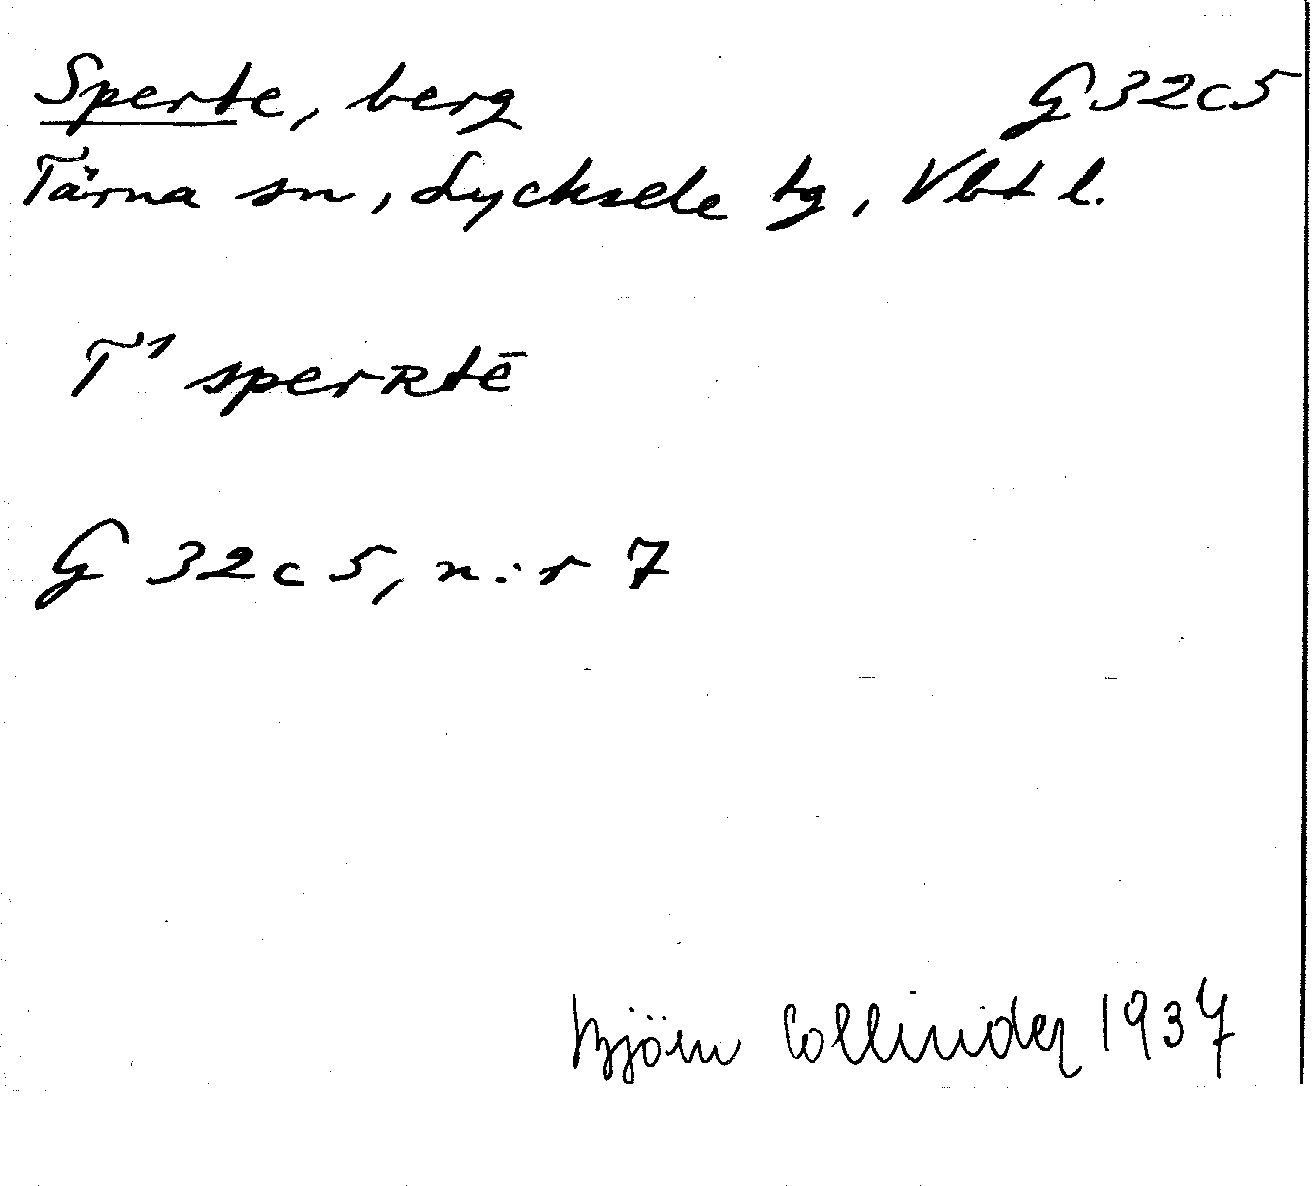 Sperte, berg G32c5
Tärna sn, Lycksele tg, Vbt l.
T¹ sperʀtē
G 32c5, n:r 7
Björn Collinder 1937